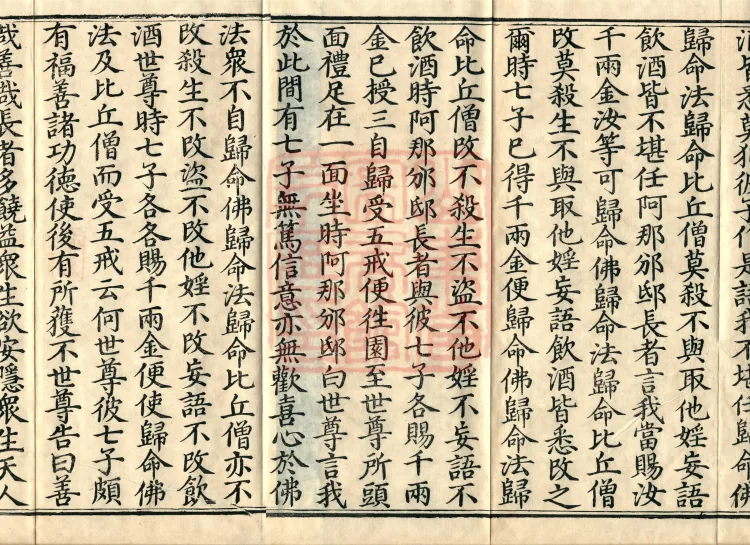 酒皆悉莫犯彼子作是語我不堪任歸命佛
歸命法歸命比丘僧莫殺不與取他婬妄語
飲酒皆不堪任阿那邠邸長者言我當賜汝
千兩金汝等可歸命佛歸命法歸命比丘僧
改莫殺生不與取他婬妄語飲酒皆悉改之
爾時七子已得千兩金便歸命佛歸命法歸
命比丘僧改不殺生不盜不他婬不妄語不
飲酒時阿那邠邸長者與彼七子各賜千兩
金已授三自歸受五戒便徃園至世尊所頭
面禮足在一面坐時阿那邠邸白世尊言我
於此間有七子無篤信意亦無歡喜心於佛
法衆不自歸命佛歸命法歸命比丘僧亦不
改殺生不改盜不改他婬不改妄語不改飲
酒世尊時七子各各賜千兩金便使歸命佛
法及比丘僧而受五戒云何世尊彼七子頗
有福善諸功德使後有所獲不世尊告曰善
哉善哉長者多饒益衆生欲安隱衆生天人